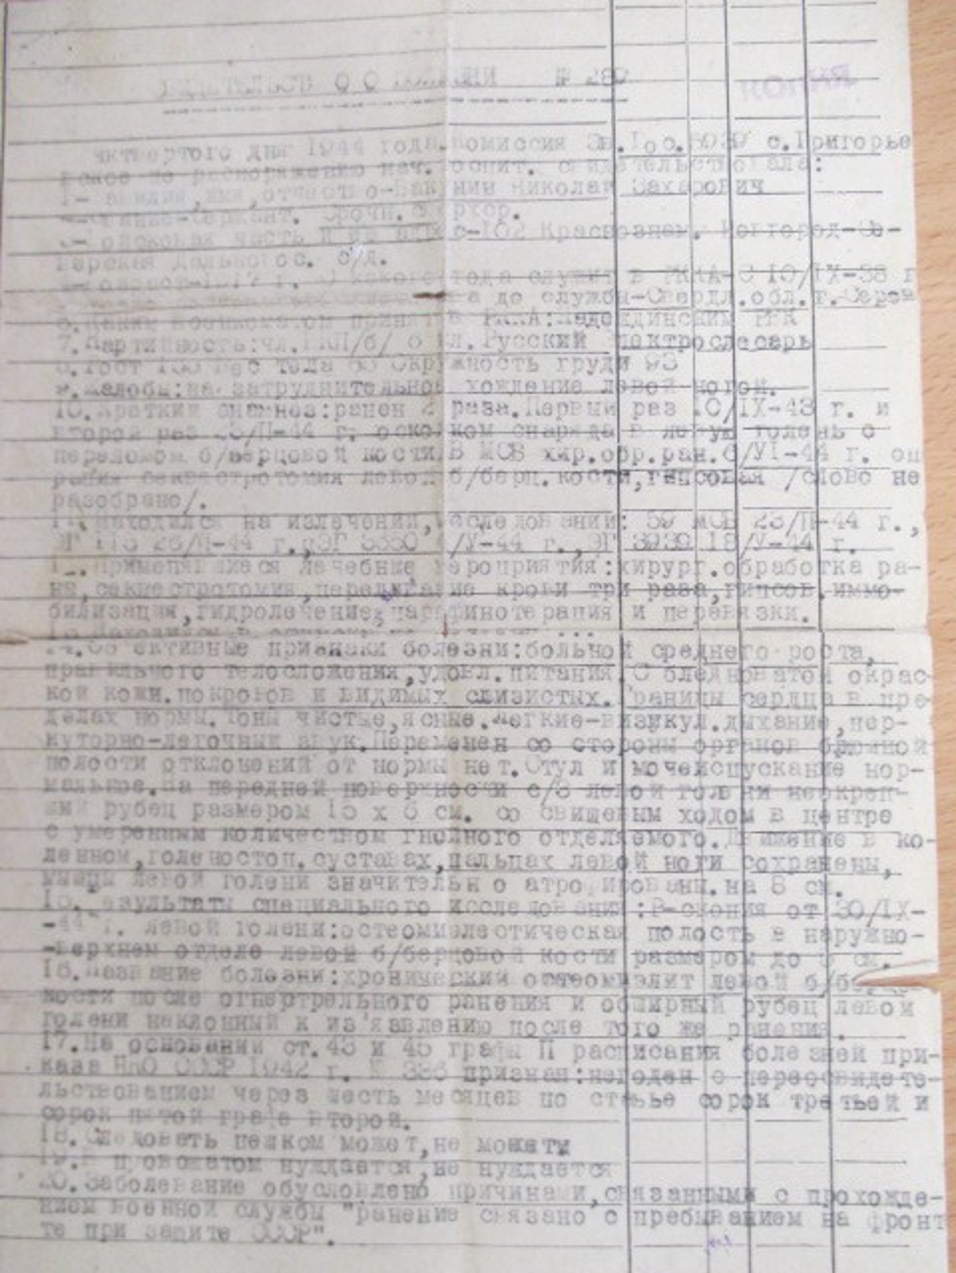 КОПИЯ
четвертого дня 1944 года комиссия Эв. Гос. 3939 с. Григорье
вское по распоряжению нач. госпит. свидетельствовала:
имя, отчество-Бакунин Николай Захарович
сержант. Срочн.
3-Войсковая часть и ее адрес-102 Краснознам. Новгород-Се-
верская Дальнев ос. с/д.
какого года служит в РККА-С 10/IX-38 г
до службы-Свердл.обл.г.Серов
6.Каким военкоматом принят в РККА:Надеждинским РВК
7.Партийность:чл.ВКП/б/ Русский электрослесарь
8.Рост вес тела 65 Окружность груди 93
9.Жалобы:на затруднительное хождение левой ногой.
10.Краткий анамнез:ранен 2 раза.Первый раз 10/IX-43 г. и
второй раз 23/П-44 г. осколком снаряда в левую голень с
переломом б/берцовой кости.В МСБ хир.обр.ран. 6/УІ-44 г. оп
рация секвестротомия левой б/берц.кости,гипсовая /слово не
разобрано/.
11.Находился на излечении, исследовании: 59 МСБ 23/П-44 г.,
ЭГ 26/П-44 г., ЭГ /У-44 г., ЭГ 3939 18/У-44 г.
Применявшиеся лечебные мероприятия:хирург.обработка ра-
ны,секвестротомия,переливание крови три раза,гипсов.иммо-
билизация,гидролечение,парафинотерапия и перевязки.
14.Об'ективные признаки болезни:больной среднего роста,
правильного телосложения,удовл.питания.С бледноватой окрас-
кой кожн.покровов и видимых слизистых.Границы сердца в пре-
делах нормы.Тоны чистые,ясные.Легкие-визикул.дыхание,пер-
куторно-легочный звук.Перемен со стороны органов брюшной
полости отклонений от нормы нет.Стул и мочеиспускание нор-
мальное.На передней поверхности с/3 левой голени неокреп-
ший рубец размером 15 х 6 см. со свищевым ходом в центре
с умеренным количеством гнойного отделяемого.Движение в ко-
ленном,голеностоп.суставах,пальцах левой ноги сохранены,
мышцы левой голени значительно атрофированы.на 8 см.
15.Результаты специального исследования:Р-скопия от 30/IX-
-44 г. левой голени:остеомиелетическая полость в наружно-
-верхнем отделе левой б/берцовой кости размером до см.
16.Название болезни:хронический остеомиэлит левой б/бер
кости после огнертрельного ранения и обширный рубец левой
голени наклонный к из'явлению после того же ранения.
17.На основании ст.43 и 45 графы П расписания болезней при-
каза НКО СССР 1942 г. № 336 признан:негоден с переосвидете-
льствованием через шесть месяцев по статье сорок третьей и
сорок пятой графе второй.
18.Следовать пешком может,не может
19.В провожатом нуждается,не нуждается
20.Заболевание обусловлено причинами,связанными с прохожде-
нием военной службы "ранение связано с пребыванием на фронт
те при защите СССР".